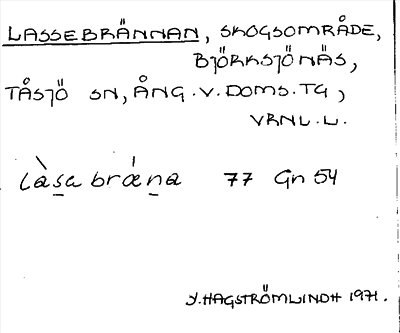 LASSEBRÄNNAN, SKOGSOMRÅDE,
BJÖRKSJÖNÄS,
TÅSJÖ SN, ÅNG.V.DOMS.TG,
VRNL.L.
làs̲a brǽn̲a 77 Gn 54
Y.HAGSTRÖMLINDH 1971.